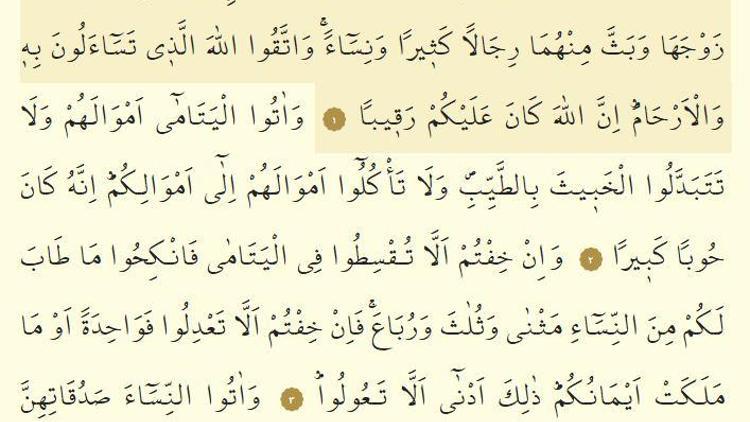 زَوْجَهَا وَبَثَّ مِنْهُمَا رِجَالًا كَثٖيرًا وَنِسَٓاءًۚ وَاتَّقُوا اللّٰهَ الَّذٖى تَسَٓاءَلُونَ بِهٖ
وَالْاَرْحَامَؕ اِنَّ اللّٰهَ كَانَ عَلَيْكُمْ رَقٖيبًا ١ وَاٰتُوا الْيَتَامٰٓى اَمْوَالَهُمْ وَلَا
تَتَبَدَّلُوا الْخَبٖيثَ بِالطَّيِّبِࣕ وَلَا تَأْكُلُٓوا اَمْوَالَهُمْ اِلٰٓى اَمْوَالِكُمْؕ اِنَّهُ كَانَ
حُوبًا كَبٖيرًا ٢ وَاِنْ خِفْتُمْ اَلَّا تُقْسِطُوا فِى الْيَتَامٰى فَانْكِحُوا مَا طَابَ
لَكُمْ مِنَ النِّسَٓاءِ مَثْنٰى وَثُلٰثَ وَرُبَاعَۚ فَاِنْ خِفْتُمْ اَلَّا تَعْدِلُوا فَوَاحِدَةً اَوْ مَا
مَلَكَتْ اَيْمَانُكُمْؕ ذٰلِكَ اَدْنٰٓى اَلَّا تَعُولُواؕ ٣ وَاٰتُوا النِّسَٓاءَ صَدُقَاتِهِنَّ